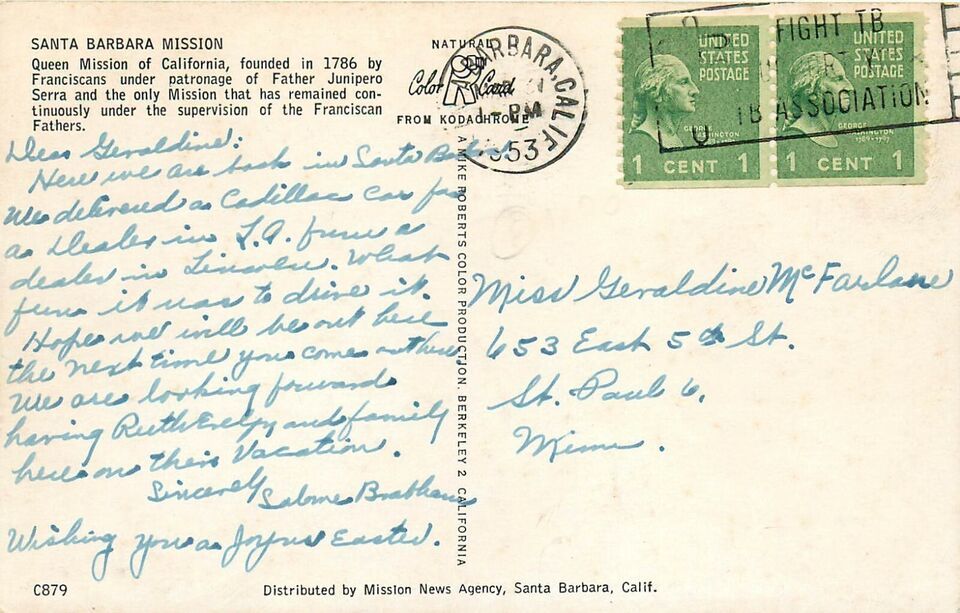 SANTA BARBARA MISSION
Queen Mission of California, founded in 1786 by
Franciscans under patronage of Father Junipero
Serra and the only Mission that has remained con-
tinuously under the supervision of the Franciscan
Fathers.
NATURAL
Color Card
FROM KODACHROME
BARBARA, CALIF.
PM
1953
FIGHT TB
TB ASSOCIATION
UNITED
STATES
POSTAGE
GEORGE
WASHINGTON
1 CENT 1
UNITED
STATES
POSTAGE
GEORGE
WASHINGTON
1789-1797
1 CENT 1
Dear Geraldine:
Here we are back in Santa Barbara
We delivered a Cadillac car for
a Dealer in L.A. from a
dealer in Lincoln. What
fun it was to drive it.
Hope we will be out here
the next time you come out here
We are looking forward
having Ruth and family
here on their Vacation.
Sincerely
Salome
Wishing you a Joyus Easter.
A MIKE ROBERTS COLOR PRODUCTION. BERKELEY 2 CALIFORNIA
Miss Geraldine McFarlane
653 East 5th St.
St. Paul 6,
Minn.
C879
Distributed by Mission News Agency, Santa Barbara, Calif.